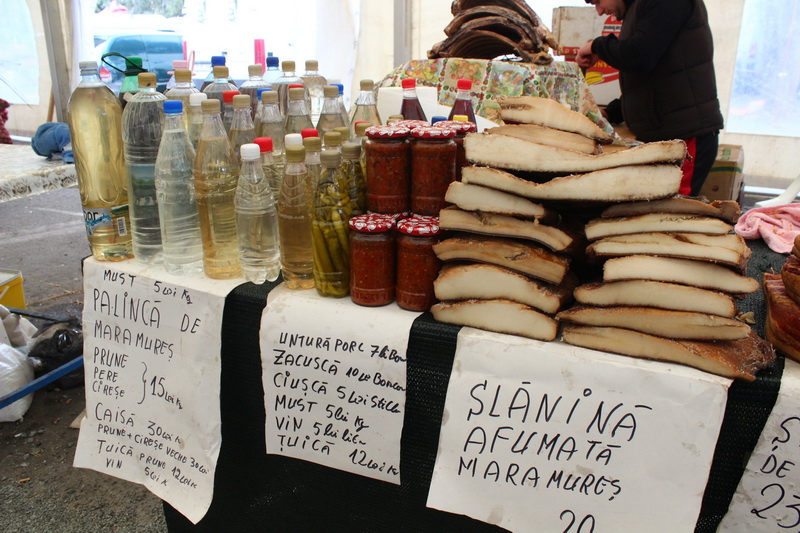 MUST 5 LEI KG
PALINCĂ DE
MARAMUREȘ
PRUNE
PERE
CIREȘE
15 LEI KG
CAISĂ 30 LEI KG
PRUNE + CIREȘE VECHE 30 LEI
ȚUICĂ PRUNE 12 LEI KG
VIN 5 LEI
UNTURĂ PORC 7 LEI
ZACUSCĂ 10 LEI BORCAN
CIUȘCĂ 5 LEI STICLA
MUST 5 LEI KG
VIN 5 LEI
ȚUICA 12 LEI KG
SLĂNINĂ
AFUMATĂ
MARAMUREȘ
20
Ș
DE
23